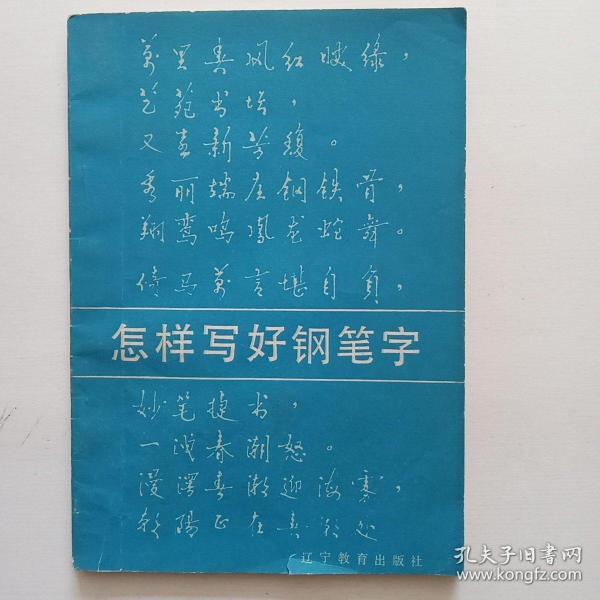 万里春风红映绿，
艺苑书坛，
又喜新芳馥。
秀丽端庄钢铁骨，
翔鸾鸣凤龙蛇舞。
倚马万言堪自负，
怎样写好钢笔字
妙笔捷书，
一派春潮怒。
漫濡春潮迎海寨，
朝阳正在春潮处
辽宁教育出版社
孔夫子旧书网
www.kongfz.com